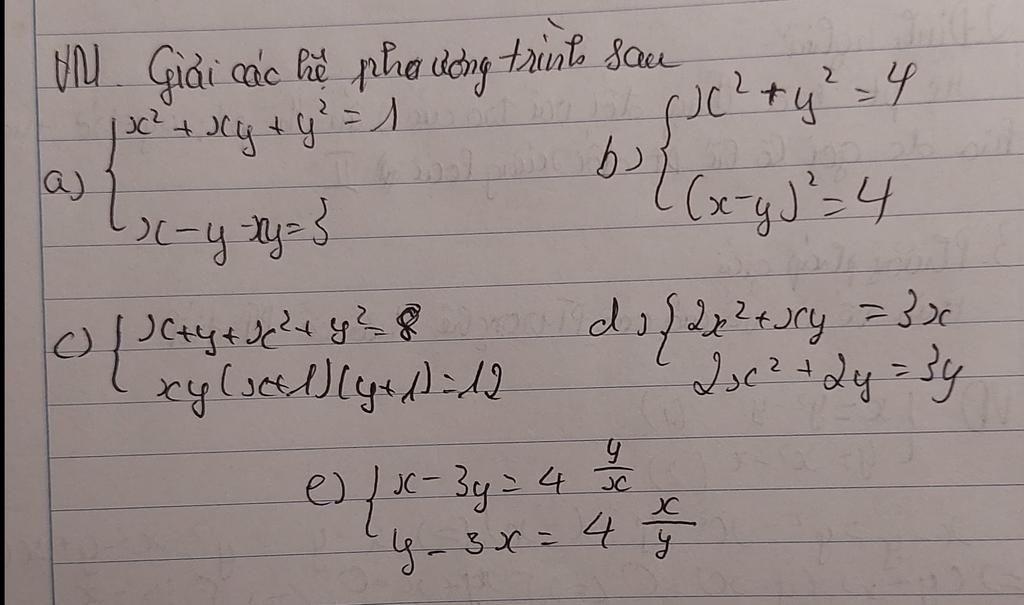 VN. Giải các hệ phương trình sau
a) { x² + xy + y² = 1
x - y - xy = 3
b) { x² + y² = 4
(x-y)² = 4
c) { x+y+x²+y² = 8
xy(x+1)(y+1) = 12
d) { 2x² + xy = 3x
2x² + 2y = 3y
e) { x - 3y = 4 y/x
y - 3x = 4 x/y